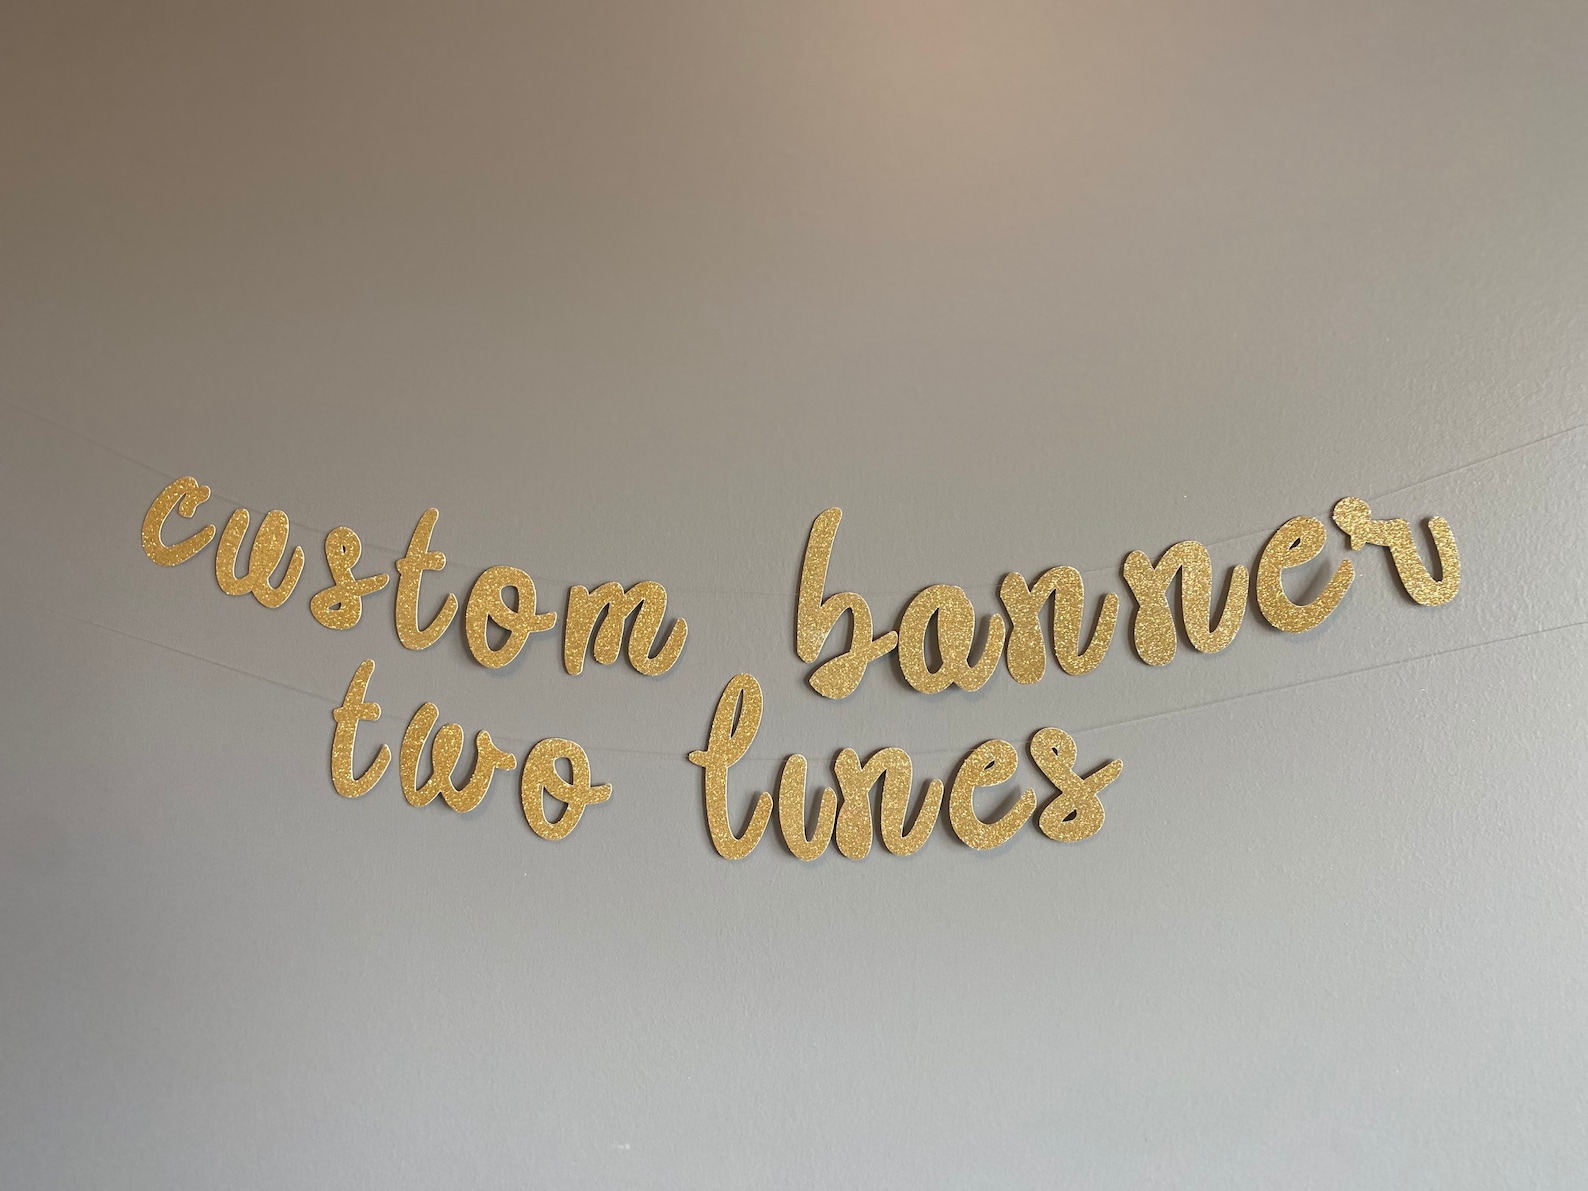 custom banner
two lines